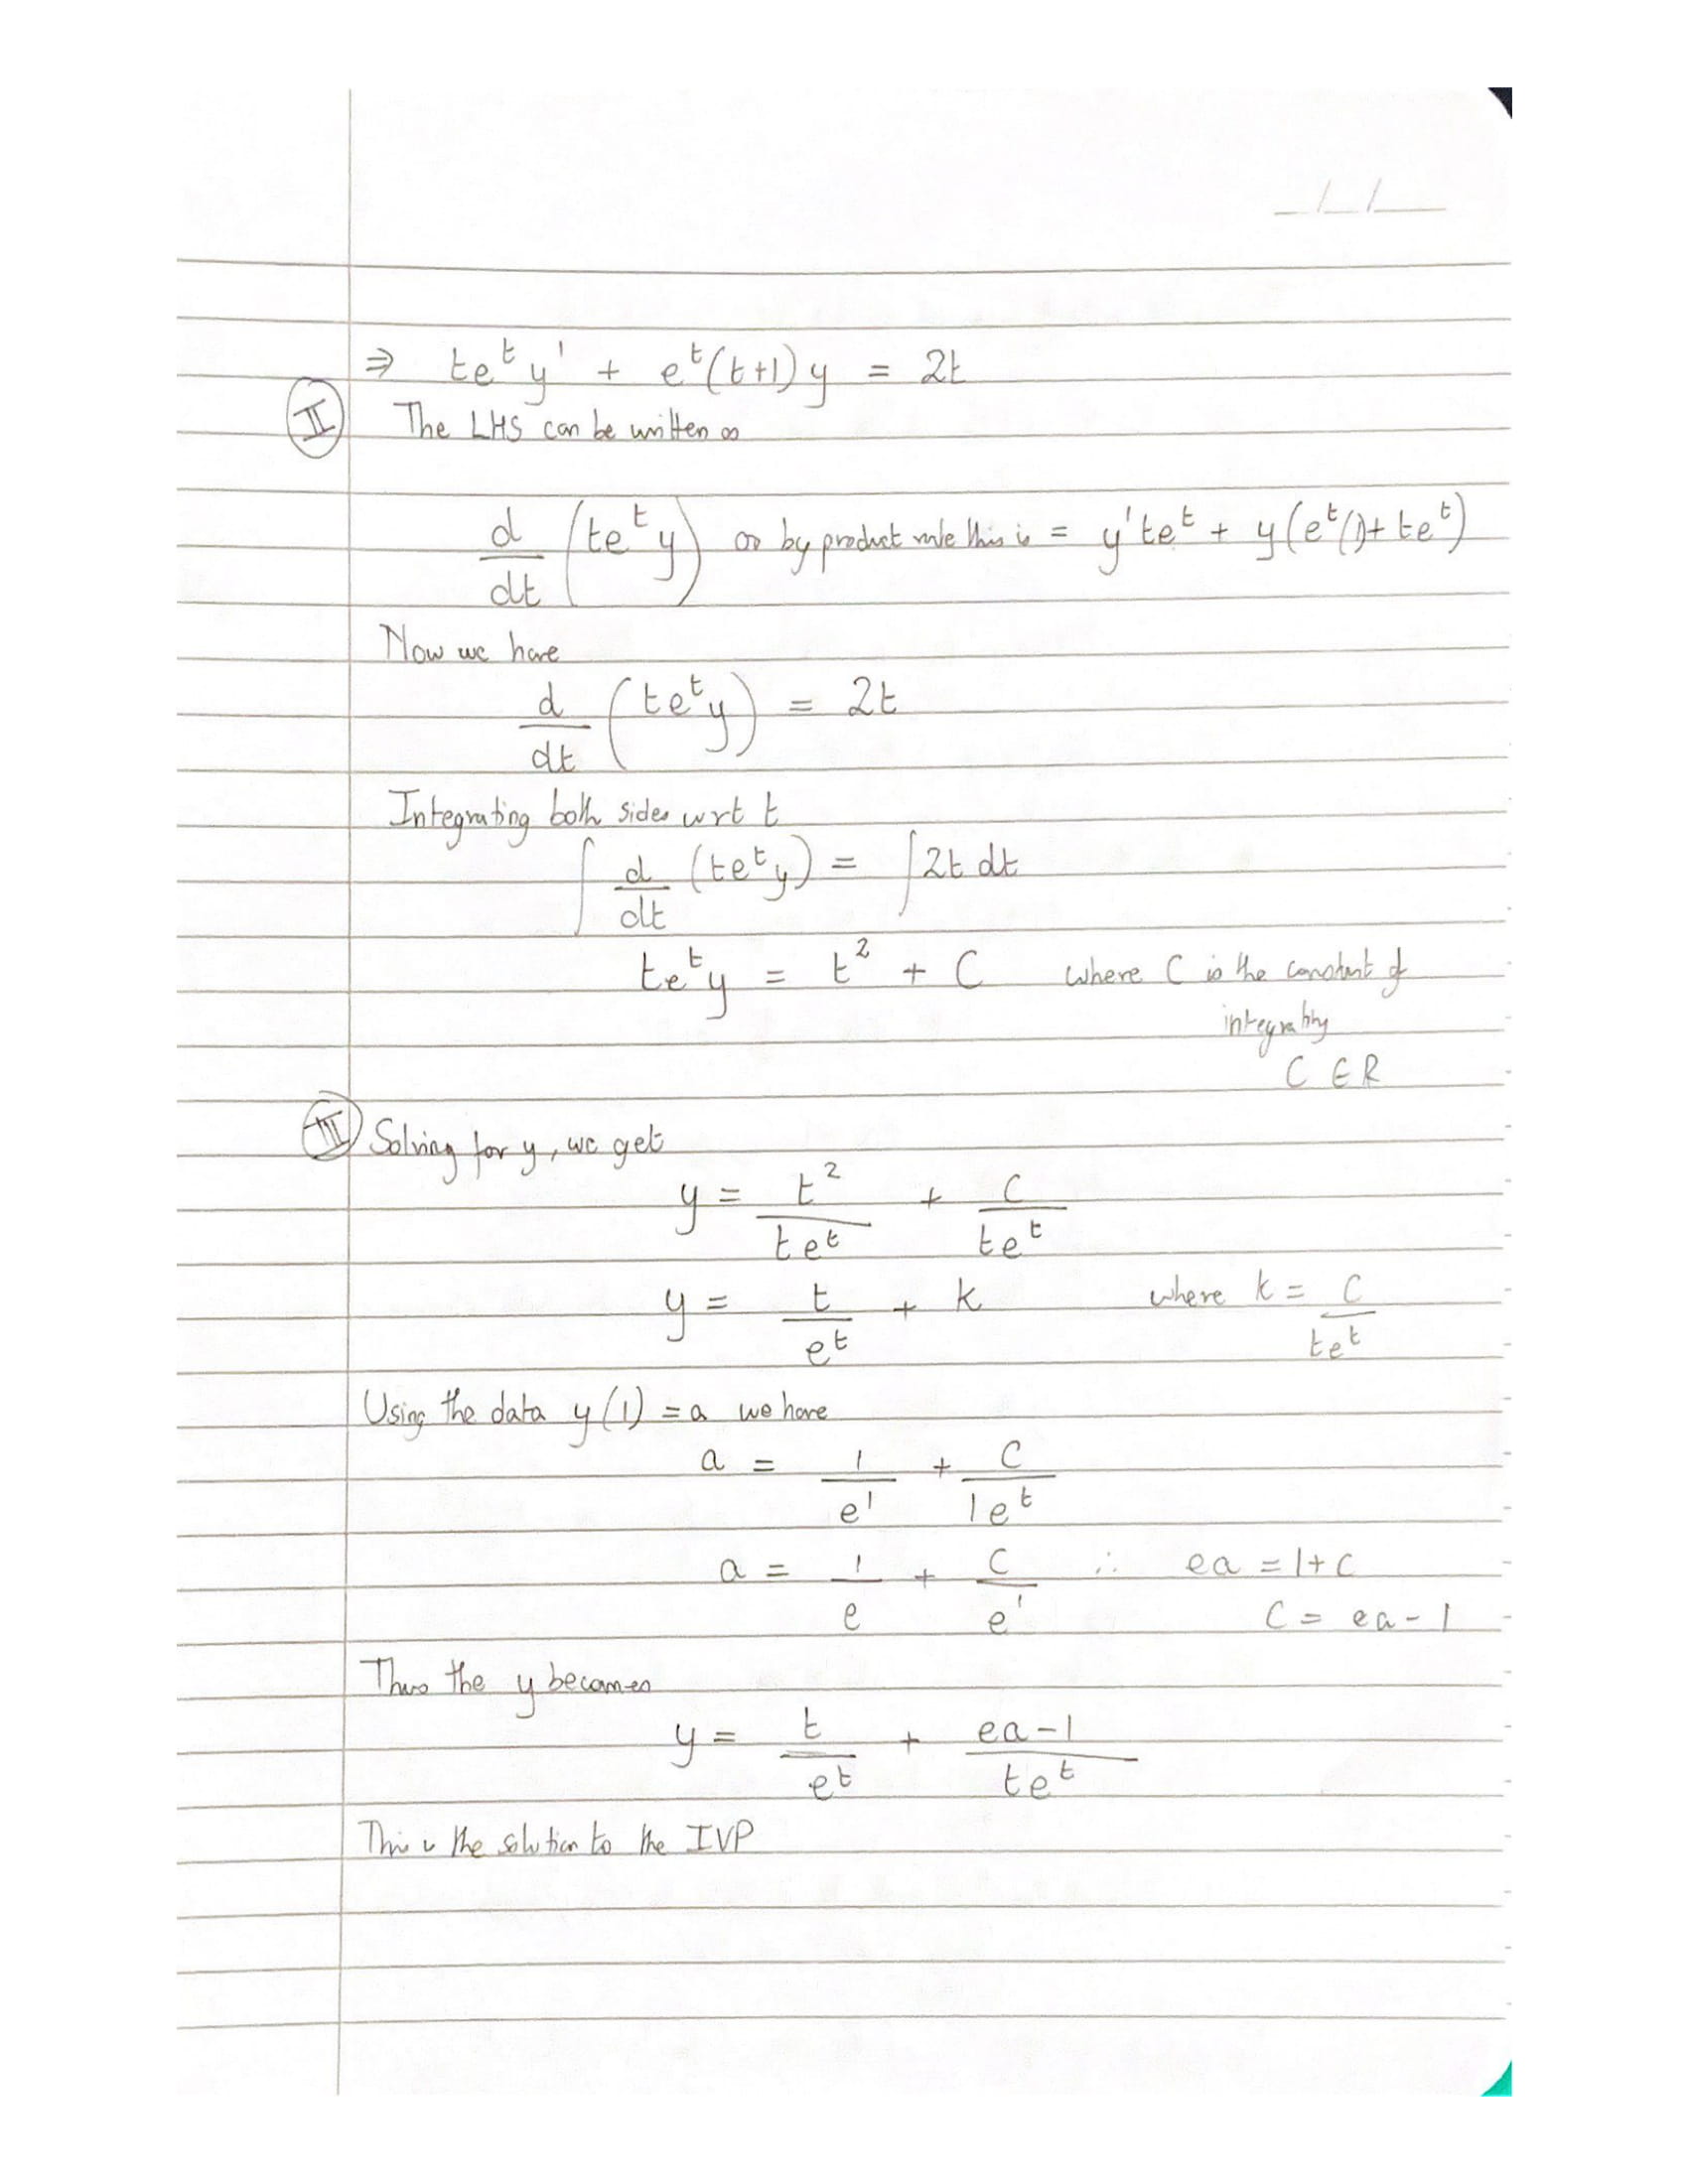 _/_/_
⇒ te^t y' + e^t(t+1)y = 2t
II The LHS can be written as
d/dt (te^t y) as by product rule this is = y'te^t + y(e^t(1)+te^t)
Now we have
d/dt (te^t y) = 2t
Integrating both sides wrt t
∫ d/dt (te^t y) = ∫2t dt
te^t y = t^2 + C where C is the constant of
C ∈ R
III Solving for y, we get
y = t^2/te^t + C/te^t
y = t/e^t + k where k = C/te^t
Using the data y(1) = a we have
a = 1/e^1 + C/1e^t
a = 1/e + C/e^1 ∴ ea = 1+C
C = ea-1
Thus the y becomes
y = t/e^t + ea-1/te^t
This is the solution to the IVP